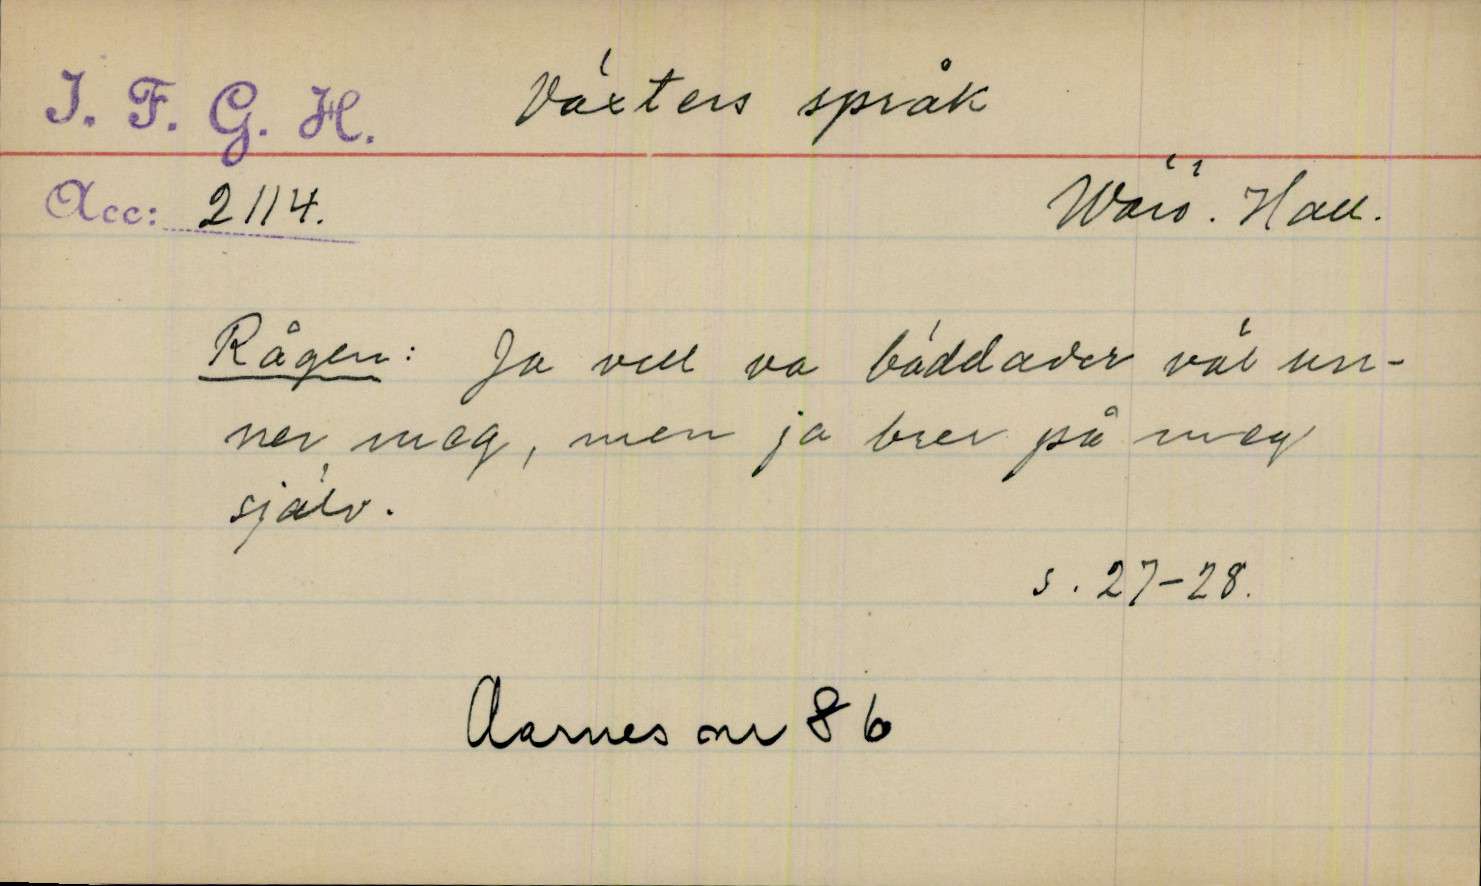 I. F. G. H. Växters språk
Acc: 2114. Wärö. Hall.
Rågen: Ja vell va bäddader väl un-
ner meg, men ja brer på meg
själv.
s. 27-28.
Aarnes nr 86